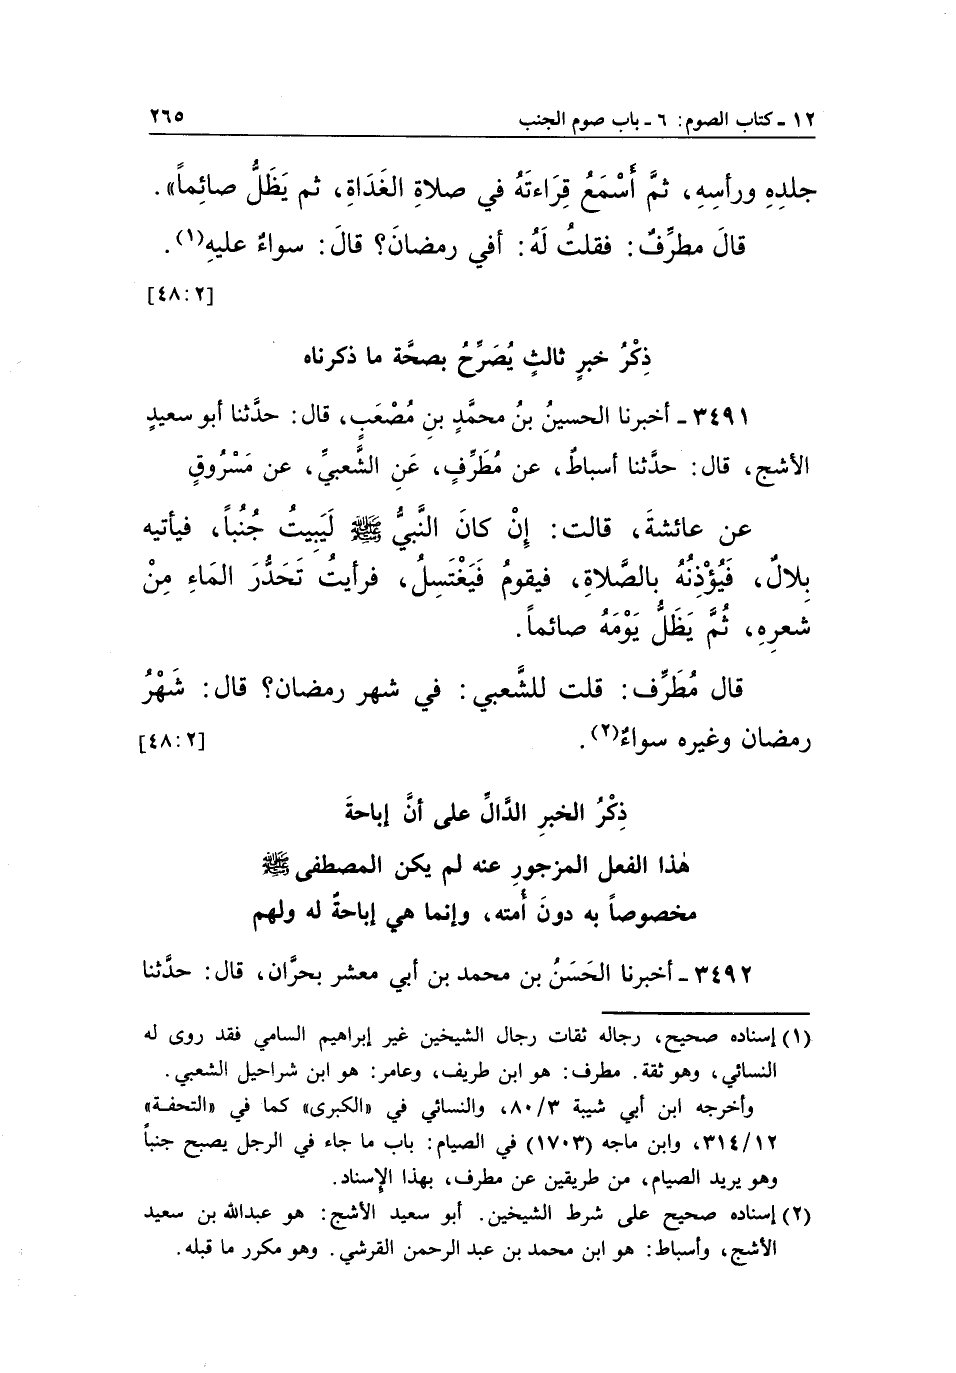 ١٢ ـ كتاب الصوم: ٦ ـ باب صوم الجنب ٢٦٥
جلدِهِ ورأسِهِ، ثمَّ أَسْمَعُ قِرَاءتَهُ في صلاةِ الغَدَاةِ، ثم يَظَلُّ صائِماً».
قالَ مطرِّفٌ: فقلتُ لَهُ: أفي رمضانَ؟ قالَ: سواءٌ عليهِ(١).
[٤٨:٢]
ذِكْرُ خبرٍ ثالثٍ يُصَرِّحُ بصحَّة ما ذكرناه
٣٤٩١ ـ أخبرنا الحسينُ بنُ محمَّدٍ بنِ مُصْعَبٍ، قال: حدَّثنا أبو سعيدٍ
الأشج، قال: حدَّثنا أسباطٌ، عن مُطَرِّفٍ، عَنِ الشَّعبيِّ، عن مَسْرُوقٍ
عن عائشةَ، قالت: إنْ كانَ النَّبيُّ ﷺ لَيَبِيتُ جُنُباً، فيأتيه
بلالٌ، فَيُؤْذِنُهُ بالصَّلاةِ، فيقومُ فَيَغْتَسِلُ، فرأيتُ تَحَدُّرَ المَاءِ مِنْ
شعرِهِ، ثُمَّ يَظَلُّ يَوْمَهُ صائماً.
قال مُطَرِّف: قلت للشَّعبي: في شهر رمضان؟ قال: شَهْرُ
رمضان وغيره سواءٌ(٢). [٤٨:٢]
ذِكْرُ الخبرِ الدَّالِّ على أنَّ إباحةَ
هٰذا الفعل المزجورِ عنه لم يكن المصطفى ﷺ
مخصوصاً به دونَ أُمته، وإنما هي إباحةٌ له ولهم
٣٤٩٢ ـ أخبرنا الحَسَنُ بن محمد بن أبي معشر بحرَّان، قال: حدَّثنا
(١) إسناده صحيح، رجاله ثقات رجال الشيخين غير إبراهيم السامي فقد روى له
النسائي، وهو ثقة. مطرف: هو ابن طريف، وعامر: هو ابن شراحيل الشعبي.
وأخرجه ابن أبي شيبة ٨٠/٣، والنسائي في «الكبرى» كما في «التحفة»
٣١٤/١٢، وابن ماجه (١٧٠٣) في الصيام: باب ما جاء في الرجل يصبح جنباً
وهو يريد الصيام، من طريقين عن مطرف، بهذا الإسناد.
(٢) إسناده صحيح على شرط الشيخين. أبو سعيد الأشج: هو عبدالله بن سعيد
الأشج، وأسباط: هو ابن محمد بن عبد الرحمن القرشي. وهو مكرر ما قبله.